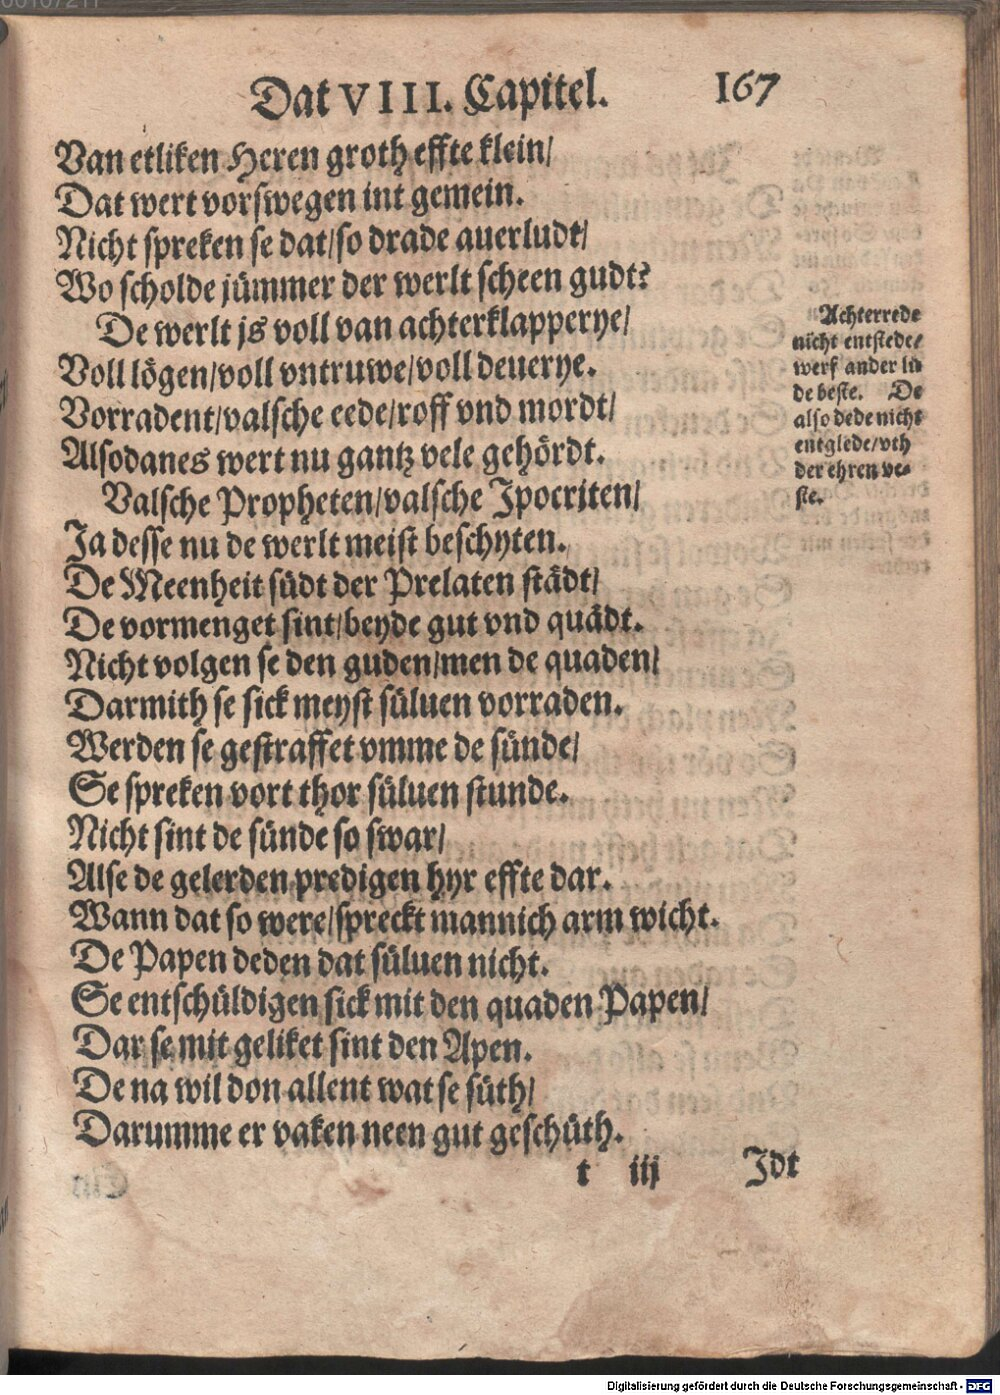 Dat VIII. Capitel. 167
Van etliken Heren groth effte klein/
Dat wert vorswegen int gemein.
Nicht spreken se dat/so drade auerludt/
Wo scholde jümmer der werlt scheen gudt?
De werlt js voll van achterklapperye/
Voll lögen/voll vntruwe/voll deuerye.
Vorradent/valsche eede/roff vnd mordt/
Alsodanes wert nu gantz vele gehördt.
Valsche Propheten/valsche Jpocriten/
Ja desse nu de werlt meist beschyten.
De Meenheit südt der Prelaten städt/
De vormenget sint/beyde gut vnd quädt.
Nicht volgen se den guden/men de quaden/
Darmith se sick meyst süluen vorraden.
Werden se gestraffet vmme de sünde/
Se spreken vort thor süluen stunde.
Nicht sint de sünde so swar/
Alse de gelerden predigen hyr effte dar.
Wann dat so were/spreckt mannich arm wicht.
De Papen deden dat süluen nicht.
Se entschüldigen sick mit den quaden Papen/
Dar se mit geliket sint den Apen.
De na wil don allent wat se süth/
Darumme er vaken neen gut geschüth.
t iij Jdt
Achterrede
nicht entstede/
werf ander lü
de beste. De
also dede nicht
entglede/vth
der ehren ve-
ste.
Digitalisierung gefördert durch die Deutsche Forschungsgemeinschaft - DFG